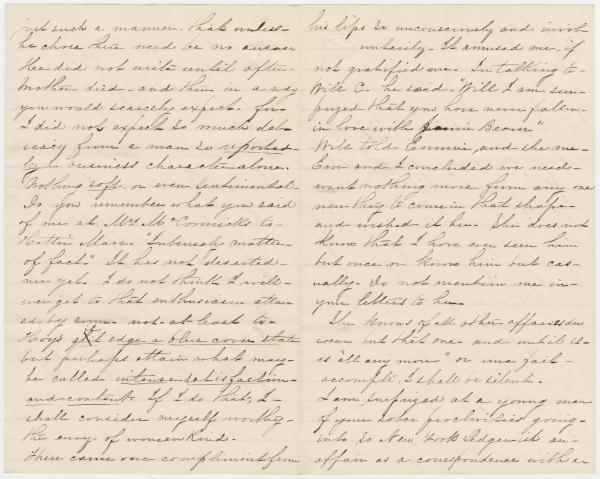 but such a manner. That unless
he chose there need be no answer
He did not write until after
Mother died - and then in a way
you would scarcely expect. for
I did not expect so much del-
icacy from a man so reported-
ly a business character alone.
Nothing soft or even sentimental-
Do you remember what you said
of me at Mrs McCormicks to
Hattie "Intensely matter-
of fact." It has not deserted
me yet. I do not think I will
ever get to that enthusiasm attain
ed by some. not at least to
gilt edge a blue cover state
but perhaps attain what may
be called intense satisfaction
and content. If I do that, I
shall consider myself worthy
the envy of womenkind.
There came one compliment from
his lips so unconsciously and invol-
untarily. It amused me, if
not gratified me. In talking to
Will C. he said. "Will I am sur-
prized that you have never fallen
in love with Beaver"
Will told Emmie, and she me.
Em and I concluded we need
want nothing more from any one
new they to come in that shape
and wished it her. She does not
know that I have ever seen him
but once, or know him but cas-
ually. Do not mention me in
your letters to her.
She knows of all other affairs du
coeur but this one - and until it
is "all any more" or une fait
accompli I shall be silent.
I am surprized at a young man
of your sober proclivities going
into so New York Ledger-ish an
affair as a correspondence with an